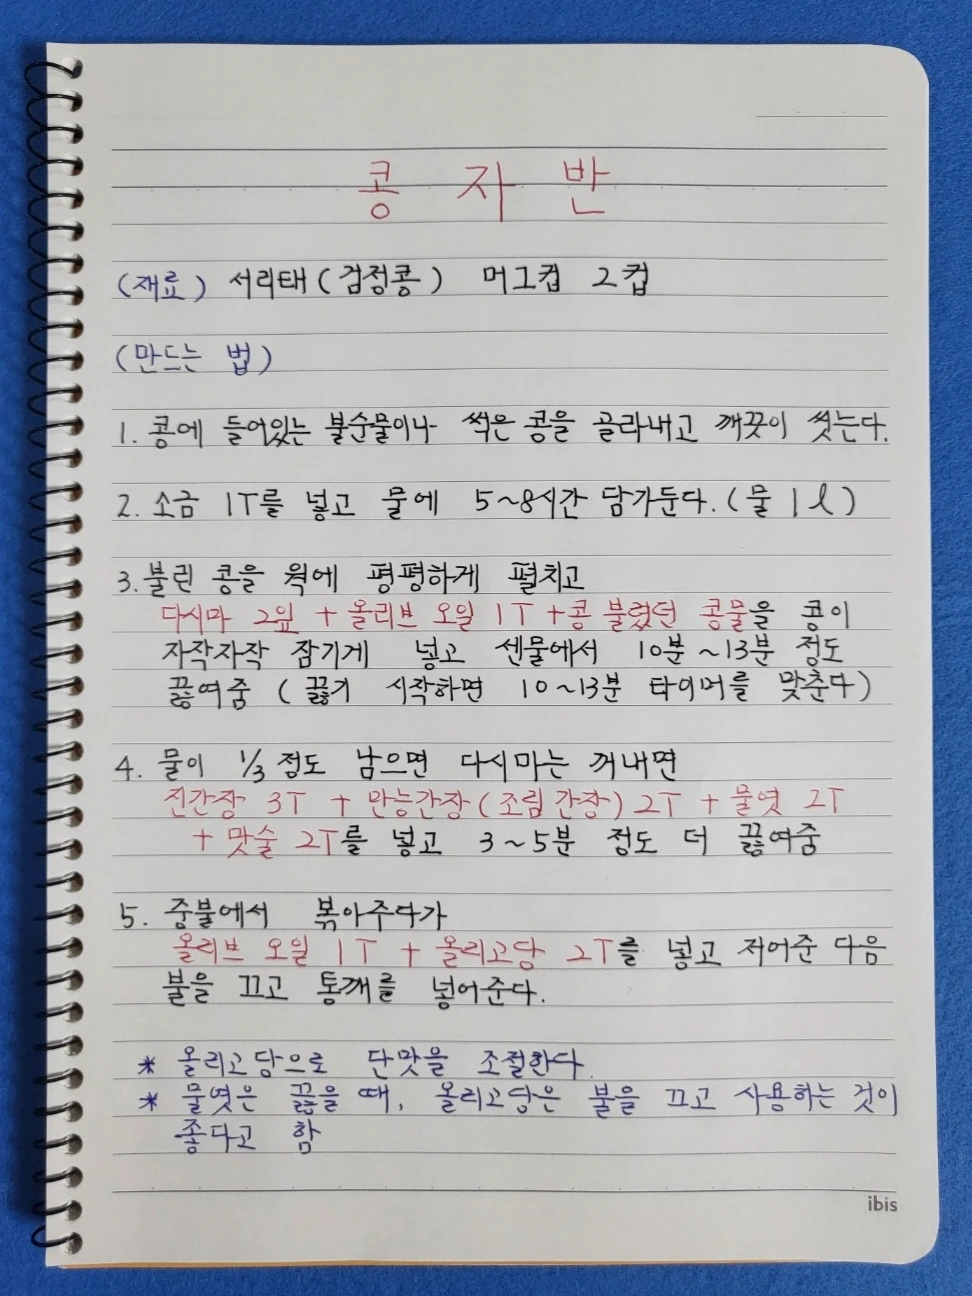 콩 자 반
(재료) 서리태(검정콩) 머그컵 2컵
(만드는 법)
1. 콩에 들어있는 불순물이나 썩은 콩을 골라내고 깨끗이 씻는다.
2. 소금 1T를 넣고 물에 5~8시간 담가둔다. (물 1ℓ)
3. 불린 콩을 웍에 평평하게 펼치고
다시마 2잎 + 올리브 오일 1T + 콩 불렸던 콩물을 콩이
자작자작 잠기게 넣고 센물에서 10분~13분 정도
끓여줌 (끓기 시작하면 10~13분 타이머를 맞춘다)
4. 물이 1/3 정도 남으면 다시마는 꺼내면
진간장 3T + 만능간장(조림간장) 2T + 물엿 2T
+ 맛술 2T를 넣고 3~5분 정도 더 끓여줌
5. 중불에서 볶아주다가
올리브 오일 1T + 올리고당 2T를 넣고 저어준 다음
불을 끄고 통깨를 넣어준다.
* 올리고당으로 단맛을 조절한다.
* 물엿은 끓을 때, 올리고당은 불을 끄고 사용하는 것이
좋다고 함
ibis